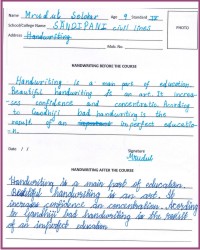 Name Mridul Solskar Age 9 Standard IV
School/College Name SANDIPANI civil lines
Address Handwriting
Mob. No.
PHOTO
HANDWRITING BEFORE THE COURSE
Handwriting is a main part of education.
Beautiful handwriting is an art. It increa-
ses confidence and concentratio. Acording
to Gandhiji bad handwriting is the
result of an imperfect educatio-
n.
Date / / Signature
Mridul
HANDWRITING AFTER THE COURSE
Handwriting is a main part of education.
Beautiful handwriting is an art. It
increases confidence an concentration. Acording
to Gandhiji bad handwriting is the result
of an imperfect education